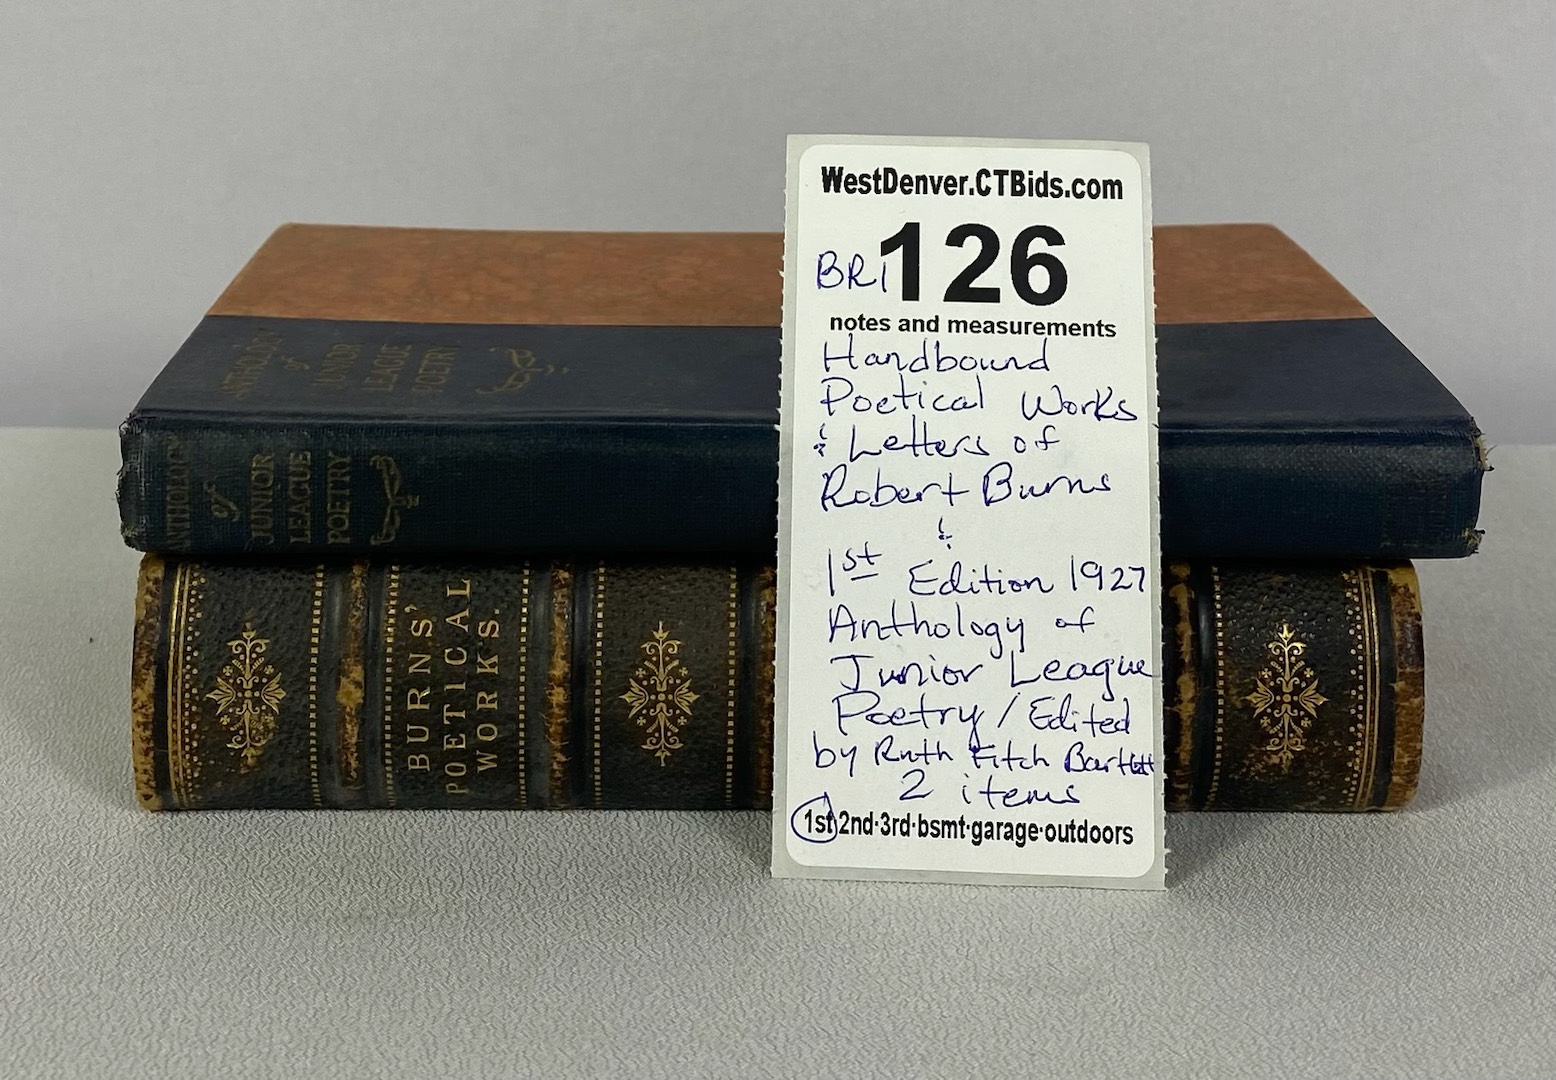 ANTHOLOGY
of
JUNIOR
LEAGUE
POETRY
ANTHOLOGY
of
JUNIOR
LEAGUE
POETRY
BURNS'
POETICAL
WORKS.
WestDenver.CTBids.com
BR1 126
notes and measurements
Handbound
Poetical Works
& Letters of
Robert Burns
&
1st Edition 1927
Anthology of
Junior League
Poetry / Edited
by Ruth Fitch Bartlett
2 items
1st 2nd·3rd·bsmt·garage·outdoors